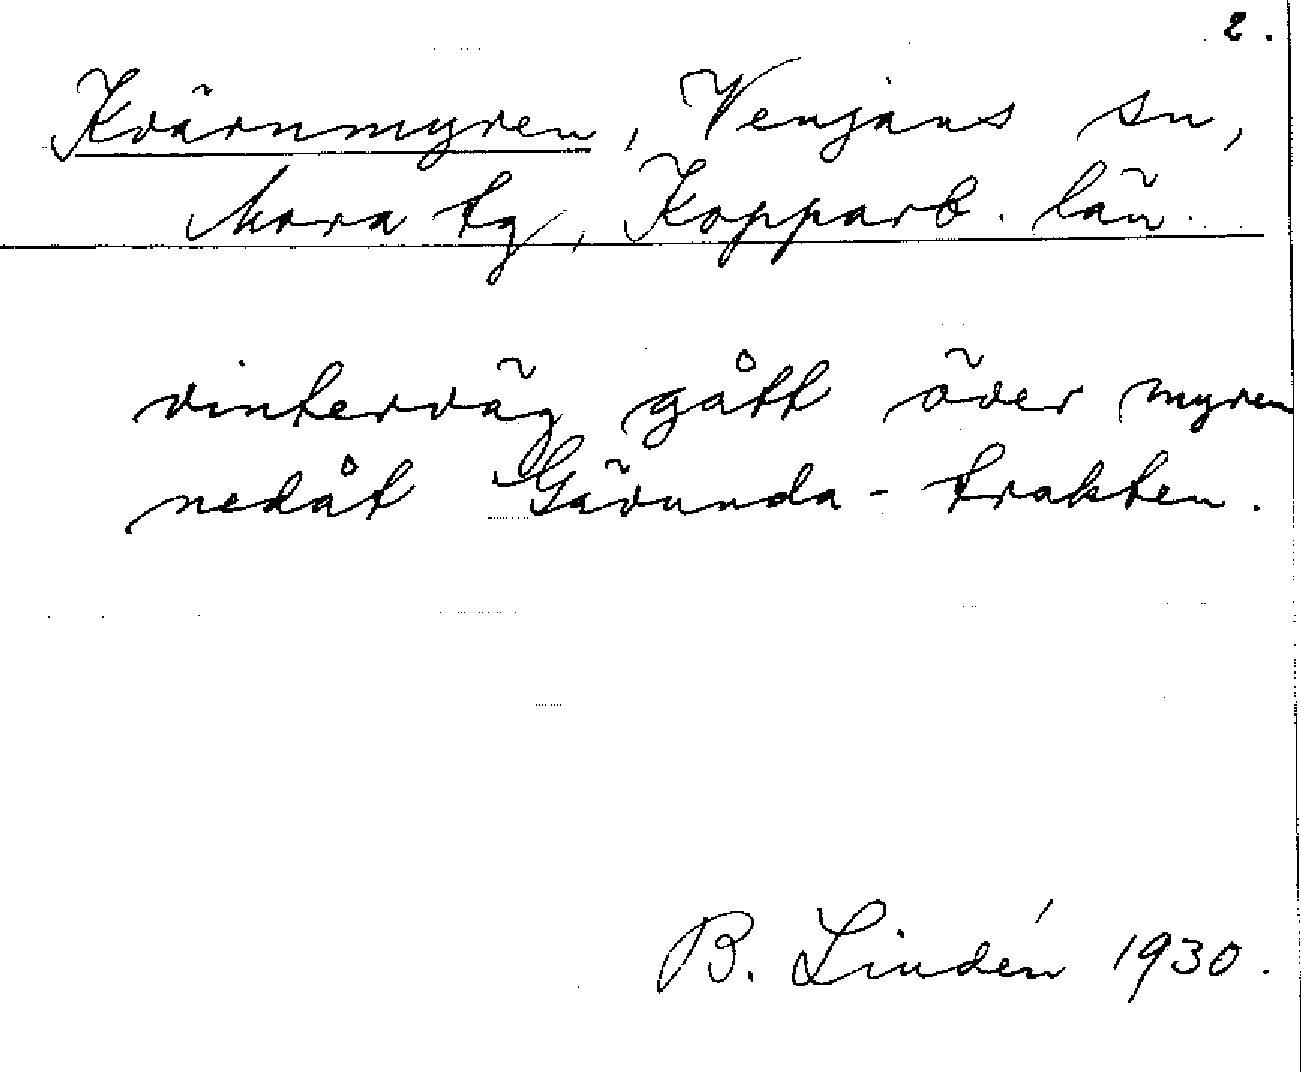 2.
Kvärnmyren, Venjans sn,
Mora tg, Kopparb. län.
vinterväg gått över myren
nedåt Gävunda-trakten.
B. Lindén 1930.